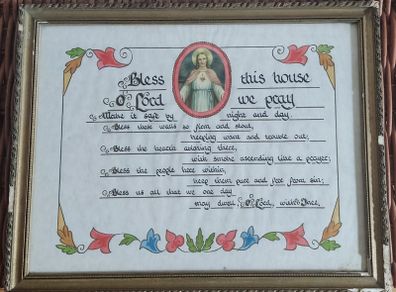 Bless this house
O Lord we pray
Make it safe by night and day,
Bless these walls so firm and stout,
keeping want and trouble out,
Bless the hearth ablaze there,
with smoke ascending like a prayer;
Bless the people here within,
keep them pure and free from sin;
Bless us all that we one day
may dwell, O Lord, with Thee,